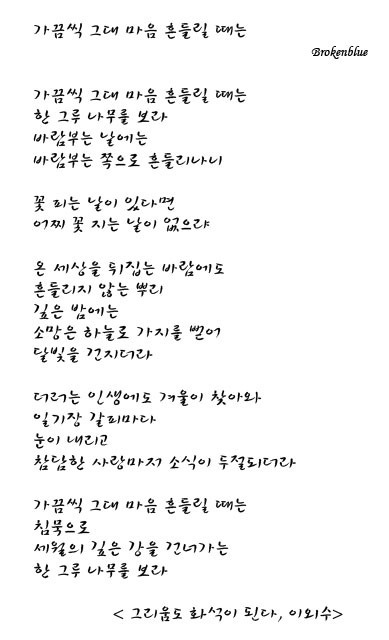 가끔씩 그대 마음 흔들릴 때는
Brokenblue
가끔씩 그대 마음 흔들릴 때는
한 그루 나무를 보라
바람부는 날에는
바람부는 쪽으로 흔들리나니
꽃 피는 날이 있다면
어찌 꽃 지는 날이 없으랴
온 세상을 뒤집는 바람에도
흔들리지 않는 뿌리
깊은 밤에는
소망은 하늘로 가지를 뻗어
달빛을 건지더라
더러는 인생에도 겨울이 찾아와
일기장 갈피마다
눈이 내리고
참담한 사랑마저 소식이 두절되더라
가끔씩 그대 마음 흔들릴 때는
침묵으로
세월의 깊은 강을 건너가는
한 그루 나무를 보라
< 그리움도 화석이 된다, 이외수>